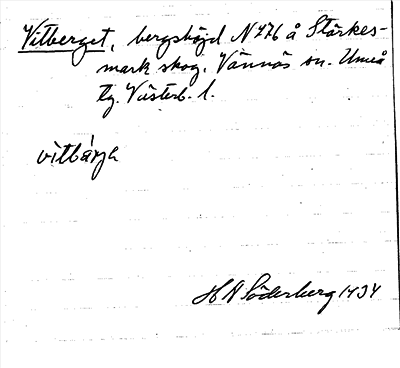 Vitberget, bergshöjd N 476 å Stärkes-
mark skog. Vännäs sn. Umeå
tg. Västerb. l.
vittbärje
H A Söderberg 1934